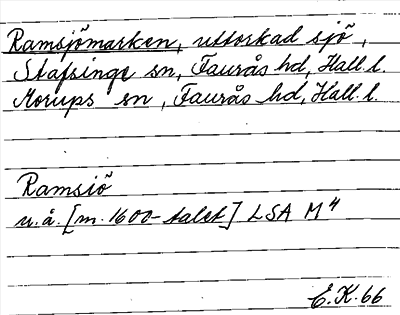 Ramsjömarken, uttorkad sjö,
Stafsinge sn, Faurås hd, Hall. l.
Morups sn, Faurås hd, Hall. l.
Ramsiö
u.å. [m. 1600-talet] LSA M 4
E.K. 66